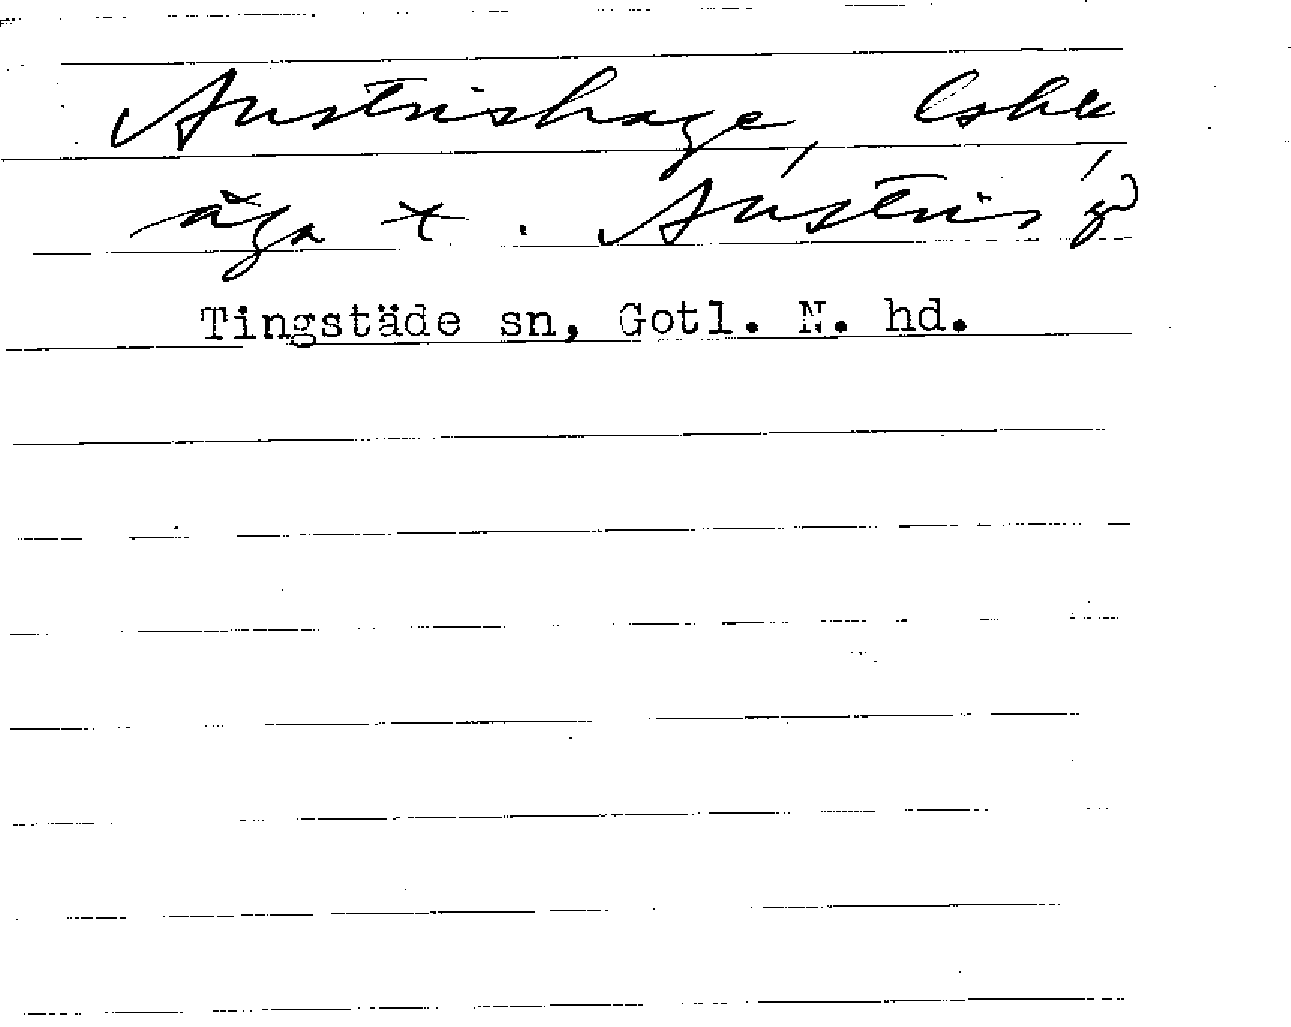 Austrishage, lshk
äga +. Austris g
Tingstäde sn, Gotl. N. hd.